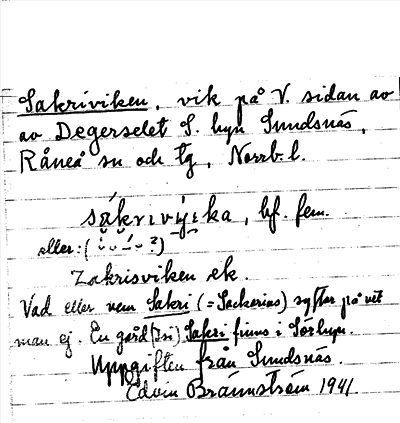 Sakriviken, vik på V. sidan av
av Degerselet S. byn Sundsnäs,
Råneå sn och tg, Norrb. l.
sákrivìjıka, bf. fem.
eller: ( ?)
Zakrisviken ek.
Vad eller vem Sakri (= Sackarias) syftar på vet
man ej. En gård Sakri finns i Sörbyn.
Uppgiften från Sundsnäs.
Edvin Brännström 1941.